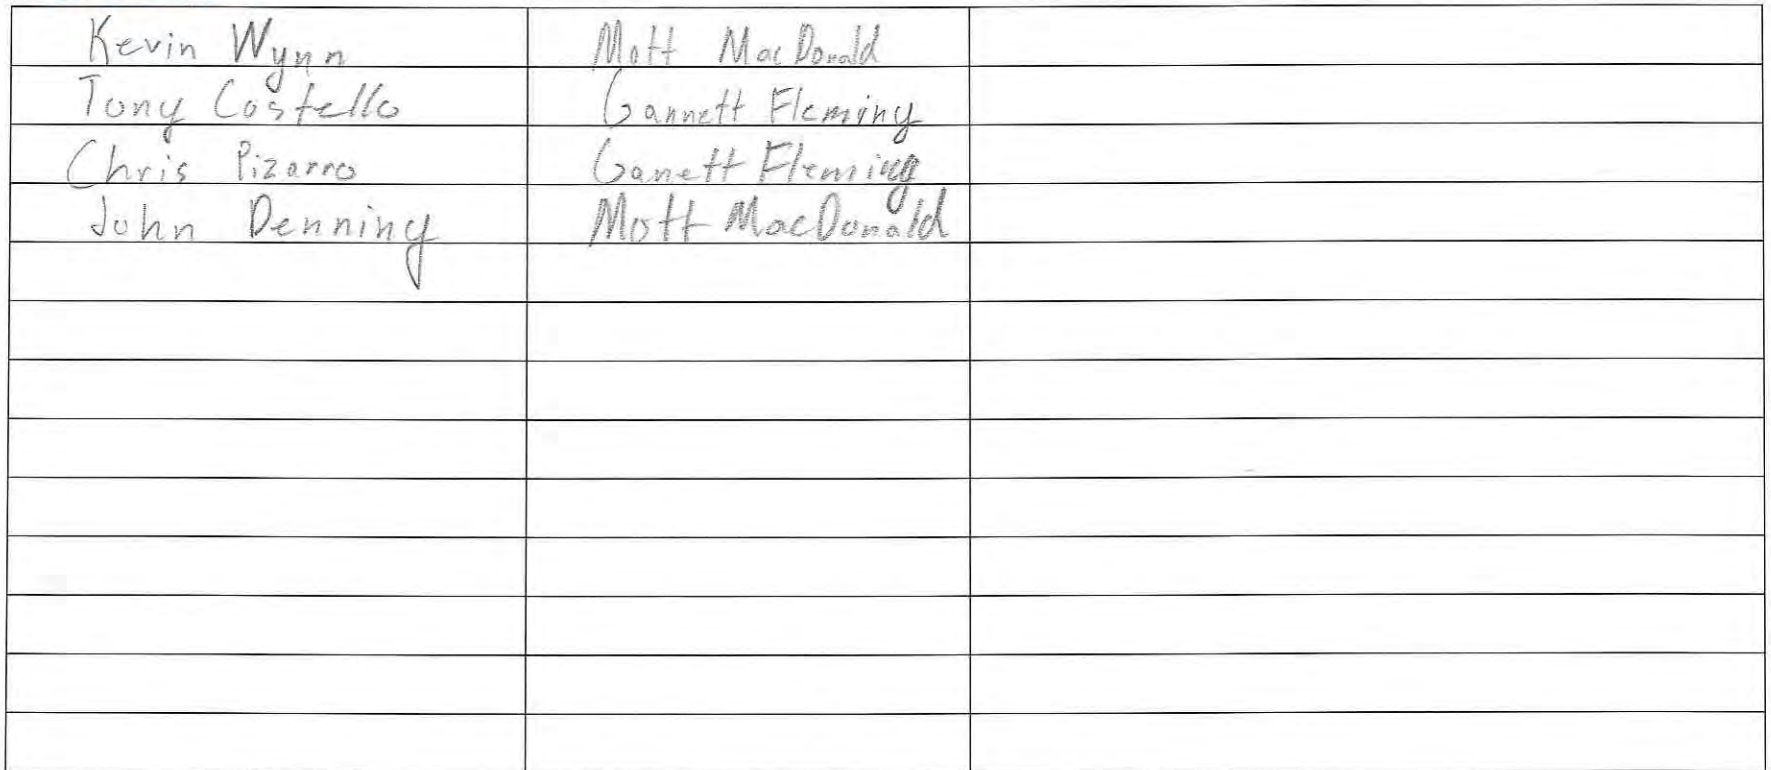 Kevin Wynn Mott MacDonald
Tony Costello Gannett Fleming
Chris Pizarro Ganett Fleming
John Denning Mott MacDonald